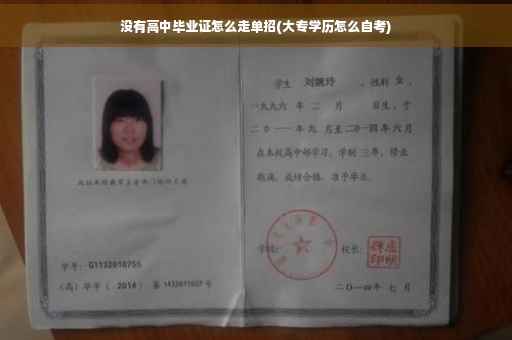 没有高中毕业证怎么走单招(大专学历怎么自考)
学生 刘婉玲 ,性别 女 ,
一九九六 年 二 月 日生,于
二〇一一年九 月至二〇一四年六月
在本校高中部学习,学制 三年,修业
期满,成绩合格,准予毕业。
学校:
校长:
学号: G1132010755
(高)毕字( 2014 )第 1432011607 号
二〇一四年 七 月